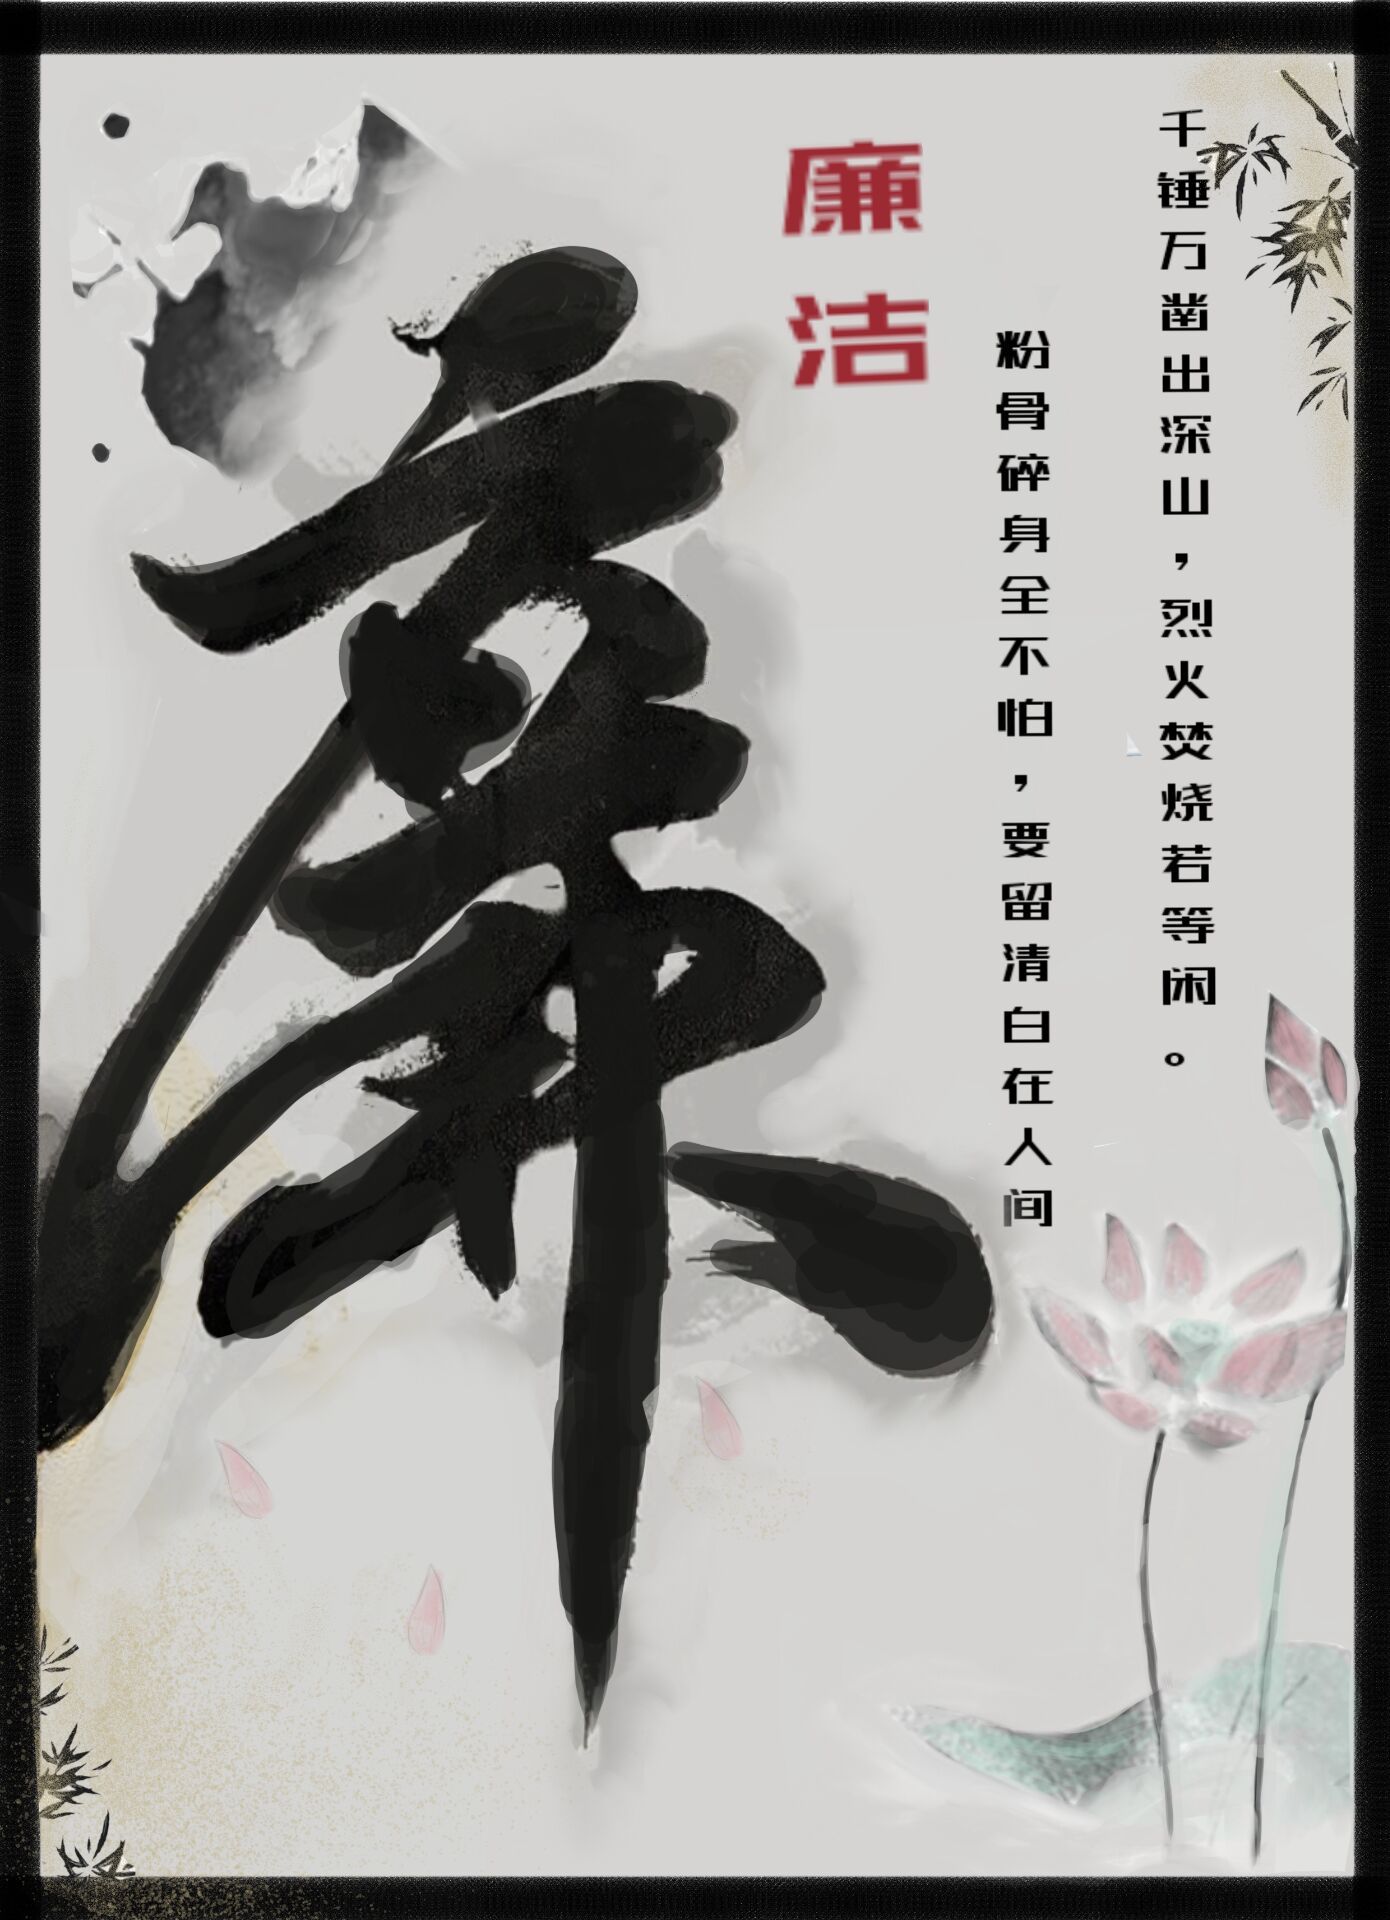 千锤万凿出深山，烈火焚烧若等闲。
粉骨碎身全不怕，要留清白在人间
廉洁
廉